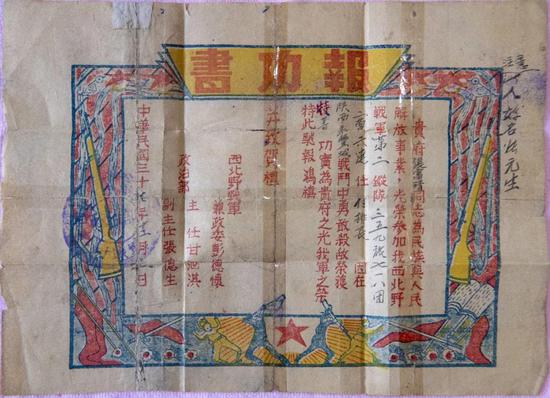 報功書
貴府張富清同志為民族與人民
解放事業，光榮參加我西北野
戰軍第二縱隊三五九旅七一八團
六連任付排長因在
陕西永豐城戰鬥中勇敢殺敵榮獲
特等功實為貴府之光我軍之榮
特此馳報鴻禧
并致賀禮
西北野戰軍
兼政委彭德懷
政治部
主任甘泗淇
副主任張德生
中華民國三十七年十二月 日
注意